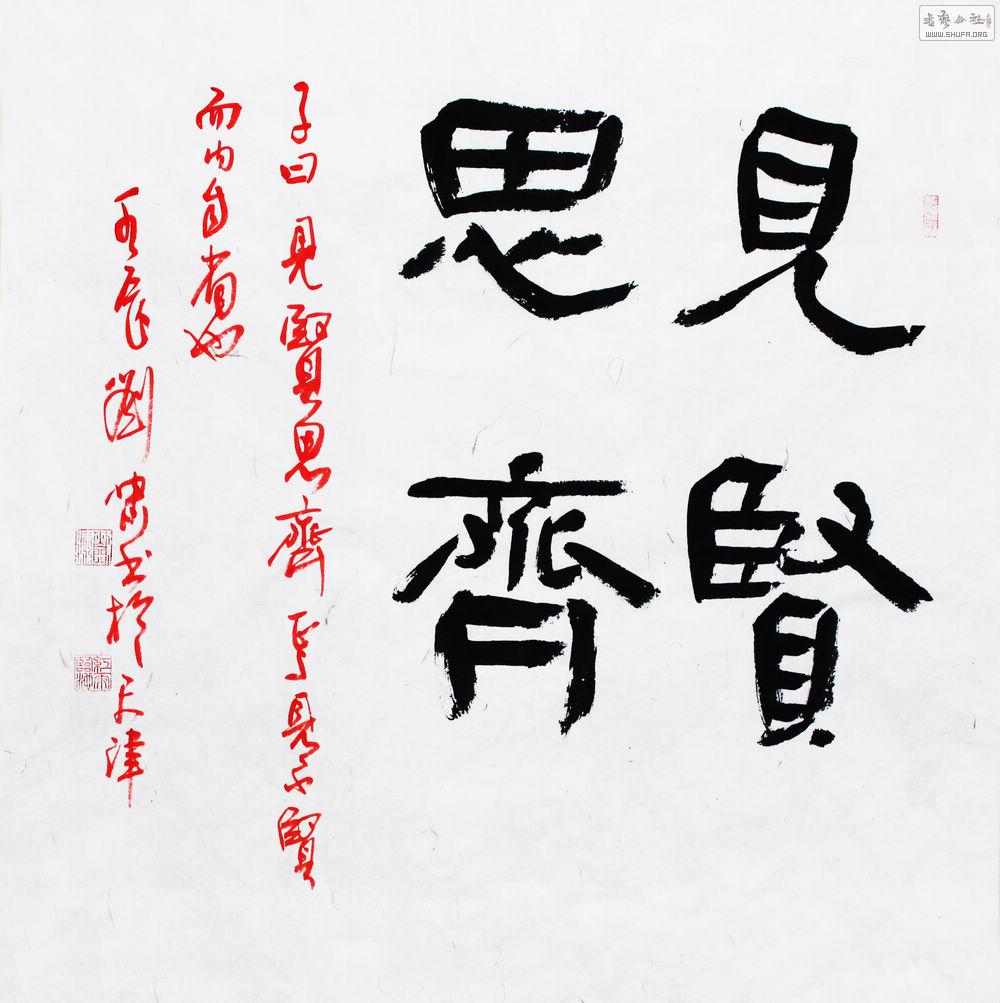 見賢
思齊
子曰見賢思齊焉見不賢
而内自省也
壬辰劉书於天津
書藝公社
WWW.SHUFA.ORG